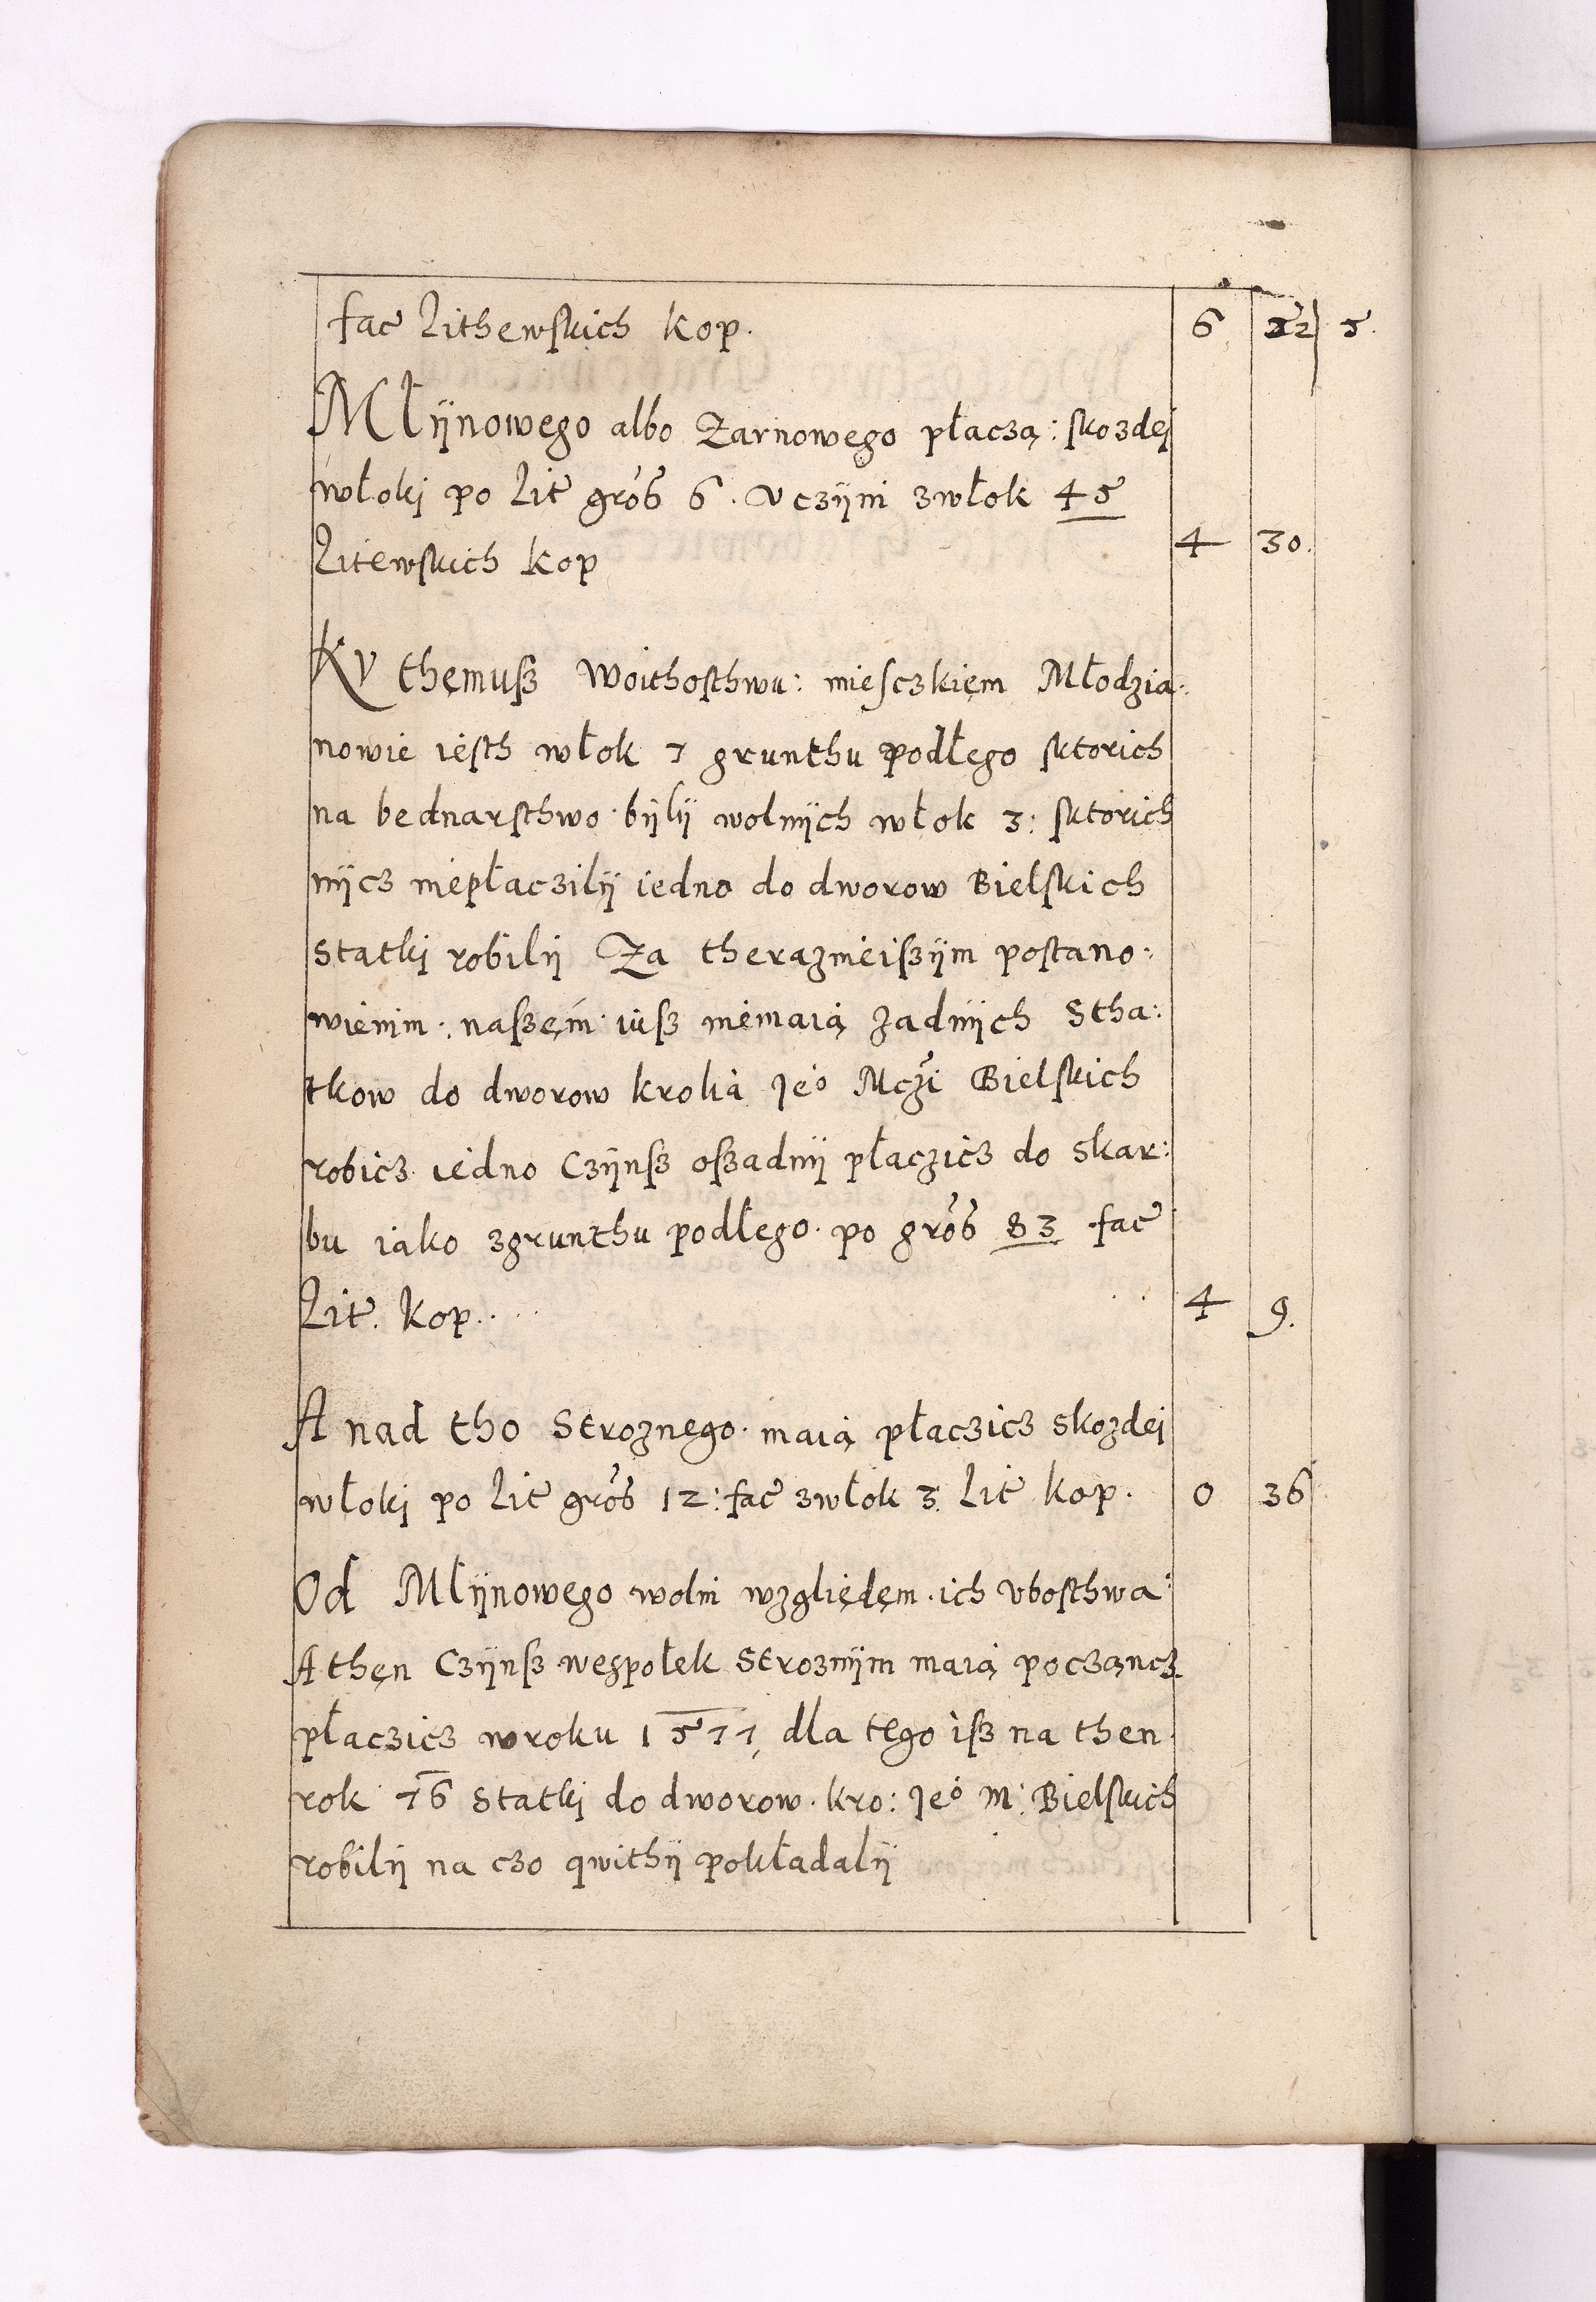 fac̃ Lithewſkich kop. 6 22 5.
Młÿnowego albo Zarnowego płaczą: ſkozdej
włokj po Lit̃ gro̓ß 6. Vczÿni zwłok 45
Litewſkich kop 4 30.
Kv thęmuſz Woithoſthwu: mieſczkięm Młodzia:
nowie ieſth włok 7 grunthu podłego ſktorich
na bednarſthwo bÿlÿ wolnÿch włok 3: ſktorich
nÿcz niepłaczilÿ iedno do dworow Bielſkich
Statkj robilÿ Za theraznieiſzÿm poſtano:
wienim: naſzęm iuſz niemaią Zadnÿch Stha:
tkow do dworow krolia Jeo̓ Mcži Bielſkich
robicz iedno Czÿnſz oſzadnÿ płaczicz do skar:
bu iako zgrunthu podłego po gro̓ß 83 fac̃
Lit̃. kop.. 4 9.
A nad tho Stroznego maią płaczicz skozdej
włokj po Lit̃ gro̓ß 12: fac̃ zwłok 3 Lit̃ kop. 0 36
Od Młÿnowego wolni wzgliędęm ich vboſthwa
A thęn Czÿnſz weſpołek Stroznÿm maią począncz
płaczicz wroku 1577 dla tego iſz na then
rok 76 Statkj do dworow kro: Jeo̓ M: Bielſkich
robilÿ na czo qwithÿ pokładalÿ